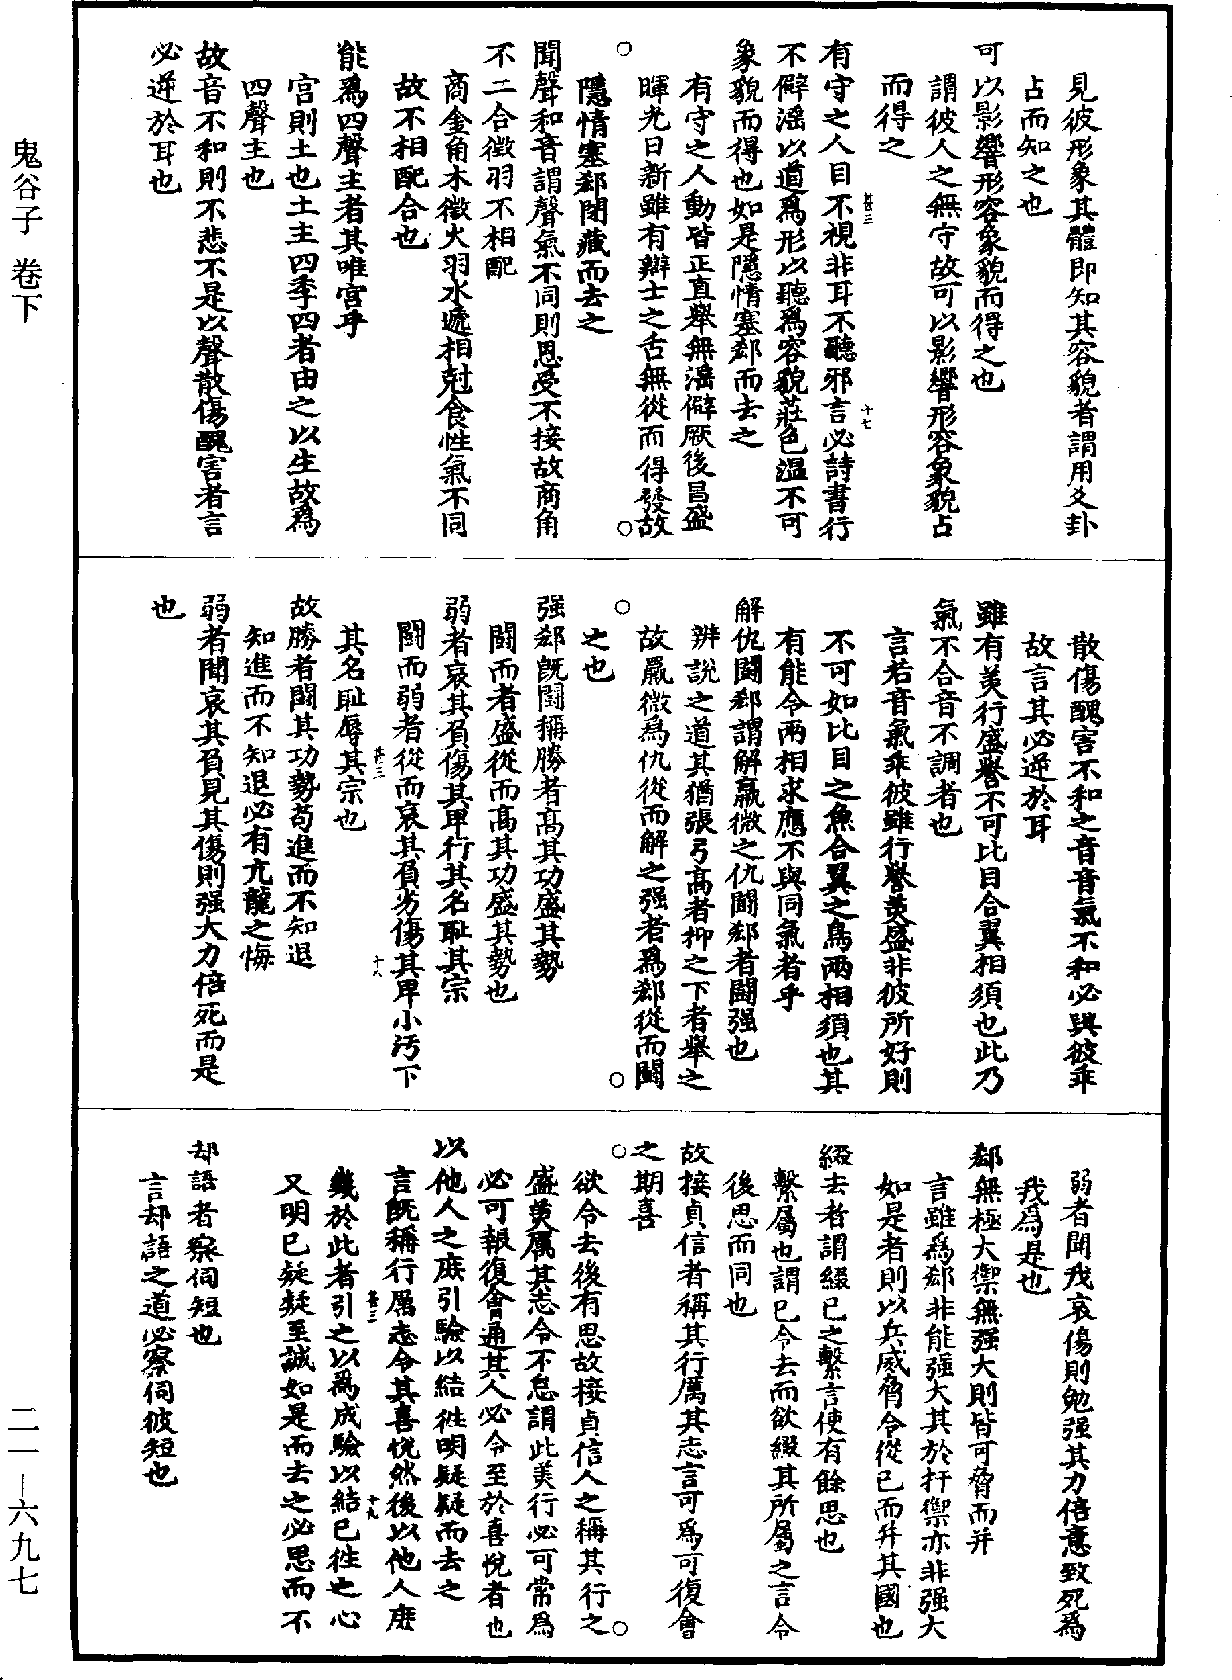 鬼谷子 卷下
見彼形象其體即知其容貌者謂用爻卦
占而知之也
可以影響形容象貌而得之也
謂彼人之無守故可以影響形容象貌占
而得之
有守之人目不視非耳不聽邪言必詩書行
不僻滛以道爲形以聽爲容貌莊色温不可
象貌而得也如是隱情塞郄而去之
有守之人動皆正直舉無滛僻厥後昌盛
暉光日新雖有辯士之舌無從而得發故
隱情塞郄閉藏而去之
聞聲和音謂聲氣不同則恩受不接故商角
不二合徵羽不相配
商金角木徵火羽水遞相尅食性氣不同
故不相配合也
能爲四聲主者其唯宫乎
宫則土也土主四季四者由之以生故爲
四聲主也
故音不和則不悲不是以聲散傷醜害者言
必逆於耳也
甚三
十七
散傷醜害不和之音音氣不和必與彼乖
故言其必逆於耳
雖有美行盛譽不可比目合翼相須也此乃
氣不合音不調者也
言若音氣乖彼雖行譽美盛非彼所好則
不可如比目之魚合翼之鳥兩相須也其
有能令兩相求應不與同氣者乎
解仇鬬郄謂解羸微之仇鬬郄者鬬强也
辨說之道其猶張弓高者抑之下者舉之
故羸微爲仇從而解之强者爲郄從而鬬
之也
强郄旣鬬稱勝者高其功盛其勢
鬬而者盛從而高其功盛其勢也
弱者哀其負傷其卑行其名耻其宗
鬬而弱者從而哀其負劣傷其卑小污下
其名耻辱其宗也
故勝者鬬其功勢苟進而不知退
知進而不知退必有亢龍之悔
弱者聞哀其負見其傷則强大力倍死而是
也
甚三
十八
弱者聞我哀傷則勉强其力倍意致死爲
我爲是也
郄無極大禦無强大則皆可脅而并
言雖爲郄非能强大其於扞禦亦非强大
如是者則以兵威脅令從已而并其國也
綴去者謂綴已之繫言使有餘思也
繫屬也謂已令去而欲綴其所屬之言令
後思而同也
故接貞信者稱其行厲其志言可爲可復會
之期喜
欲令去後有思故接貞信人之稱其行之
盛美厲其志令不怠謂此美行必可常爲
必可報復會通其人必令至於喜悅者也
以他人之庶引驗以結徃明疑疑而去之
言旣稱行厲志令其喜悅然後以他人庶
幾於此者引之以爲成驗以結已徃之心
又明已疑疑至誠如是而去之必思而不
却語者察伺短也
言却語之道必察伺彼短也
甚三
十九
二一—六九七